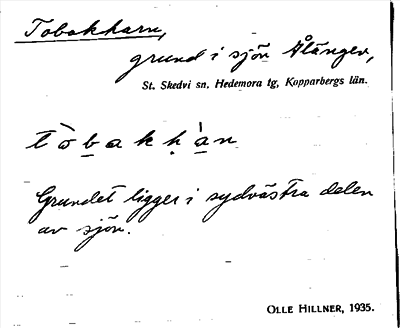 Tobakharn,
grund i sjön Ålängen,
St. Skedvi sn, Hedemora tg, Kopparbergs län.
tòbakhàn
Grundet ligger i sydvästra delen
av sjön.
OLLE HILLNER, 1935.